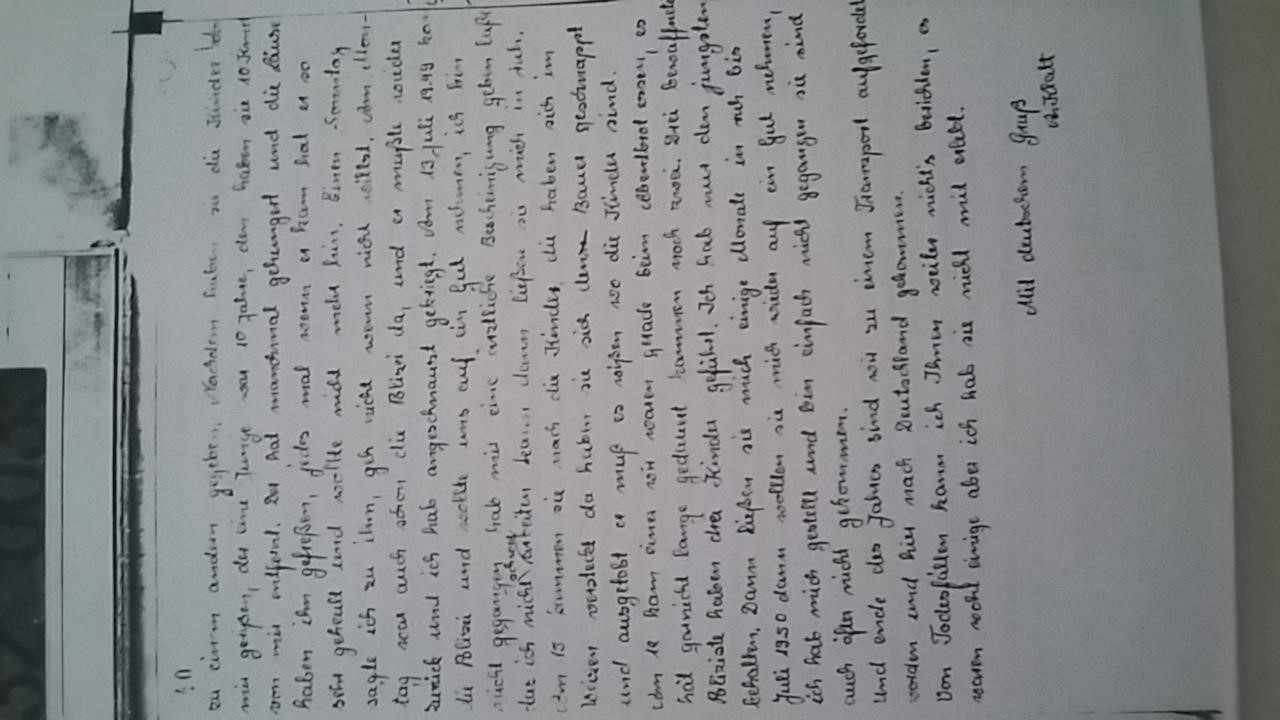 10
zu einem andern gegeben, Nachdem haben sie die Kinder
mir gerißen, der eine Junge war 10 Jahre, den haben sie 10
von mir entfernt. Der hat manschmal gehungert und die Läuse
haben ihn gefreßen, jedes mal wenn er kam hat er so
sehr geheult und wollte nicht mehr hin. Einen Sonntag
sagte ich zu ihm, geh nicht wenn nicht willst. Am Mon-
tag war auch schon die Polizei da, und er mußte wieder
zurück und ich hab angeschnautzt gekriegt. Am 13 Juli 1949 kam
die Polizei und wollte uns auf ein Gut nehmen, ich bin
nicht gegangen hab mir eine ärztliche Bescheinigung geben laße
das ich nicht schwer Arbeiten kann dann ließen sie mich in ruh.
Am 15 kommen sie nach die Kinder, die haben sich im
Weizen versteckt da haben sie sich den Bauer geschnappt
und ausgetobt er muß es wißen wo die Kinder sind.
Um 12 kam einer wir waren gerade beim Abendbrot essen, es
hat garnicht lange gedauert kammen noch zwei. Drei bewaffnete
Poliziste haben drei Kinder geführt. Ich hab nur den jungsten
behalten. Dann ließen sie mich einige Monate in ruh bis
Juli 1950 dann wollten sie mich wieder auf ein Gut nehmen,
ich hab mich gestellt und bin einfach nicht gegangen sie sind
auch öfter nicht gekommen.
Und ende des Jahres sind wir zu einem Transport aufgefordet
worden und hier nach Deutschland gekommen.
Von Todesfällen kann ich Ihnen weiter nicht's berichten, es
waren wohl einige aber ich hab sie nicht mit erlebt.
Mit deutschem Gruß
A. Klatt